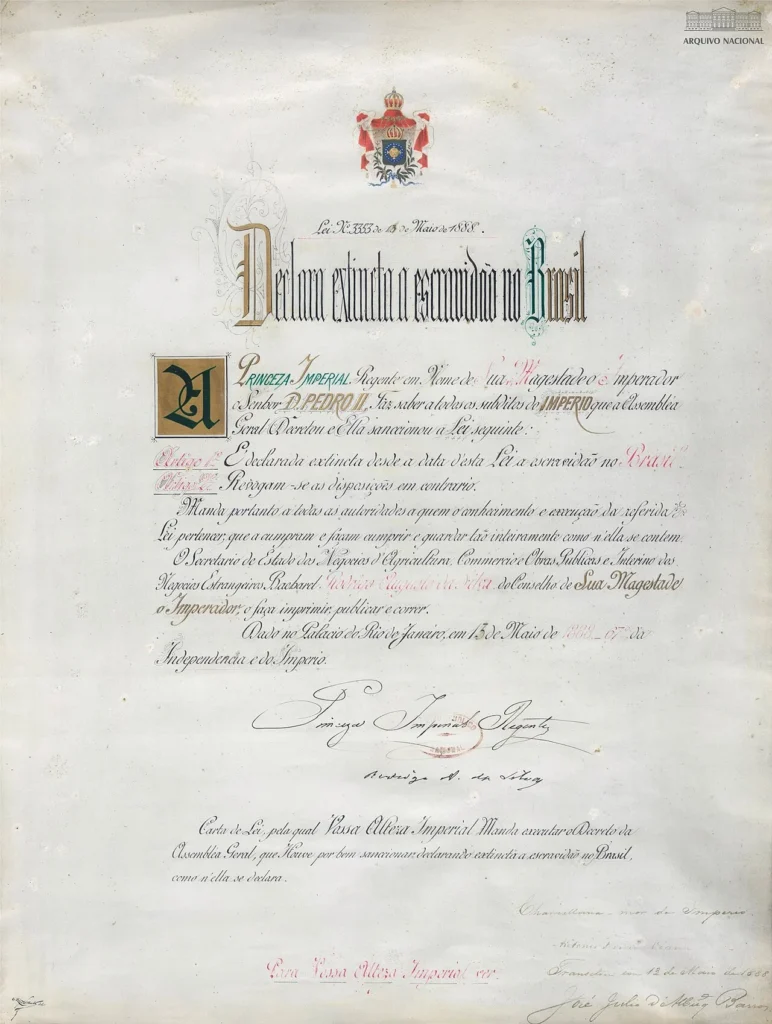 ARQUIVO NACIONAL
Lei Nº 3353 de 13 de Maio de 1888.
Declara extincta a escravidão no Brasil
A PRINCEZA IMPERIAL Regente em Nome de Sua Magestade o Imperador
o Senhor D. PEDRO II, Faz saber a todos os subditos do IMPERIO que a Assemblea
Geral Decretou e Ella sanccionou a Lei seguinte:
Artigo 1º E declarada extincta desde a data d'esta Lei a escravidão no Brasil.
Artigo 2º Revogam-se as disposições em contrario.
Manda portanto a todas as autoridades a quem o conhecimento e execução da referida
Lei pertencer, que a cumpram e façam cumprir e guardar tão inteiramente como n'ella se contem.
O Secretario de Estado dos Negocios d'Agricultura, Commercio e Obras Publicas e Interino dos
Negocios Estrangeiros Bacharel Rodrigo Augusto da Silva, do Conselho de Sua Magestade
o Imperador, o faça imprimir, publicar e correr.
Dado no Palacio do Rio de Janeiro, em 13 de Maio de 1888 67º da
Independencia e do Imperio.
Princeza Imperial Regente
NACIONAL
Rodrigo A. da Silva
Carta de Lei, pela qual Vossa Alteza Imperial Manda executar o Decreto da
Assemblea Geral, que Houve por bem sanccionar, declarando extincta a escravidão no Brasil,
como n'ella se declara.
Para Vossa Alteza Imperial ver.
do Imperio
Transitou em 13 de Maio de 1888
José Julio d'Albuqº Barros